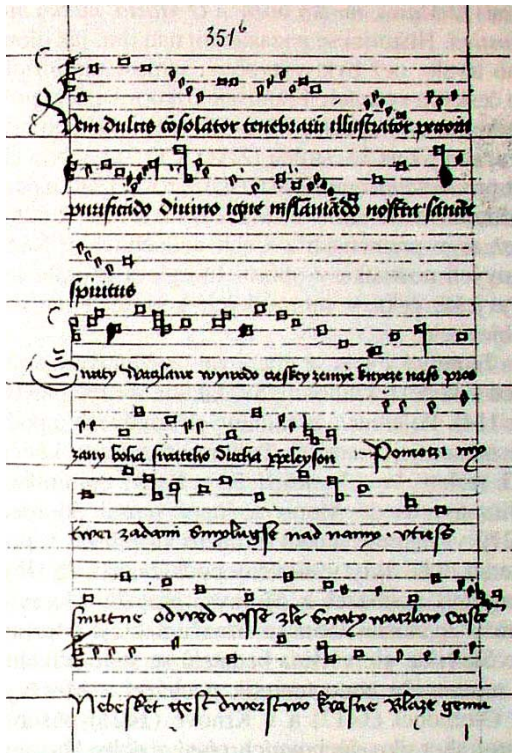 351b
Veni dulcis cōsolator tenebrarū illustrator
purificādo divino igne inflamādo sancte
spiritus
Swaty Waczlawe wywodo czeskey zemye knyeze nass pros
zany boha swateho ducha kyrieleyson Pomoczi my
twei zadam smylugsse nad namy utiess
smutne odwed wsse zle swaty waczlawe
Nebeske gest dworstwo krasne Blaze gemu